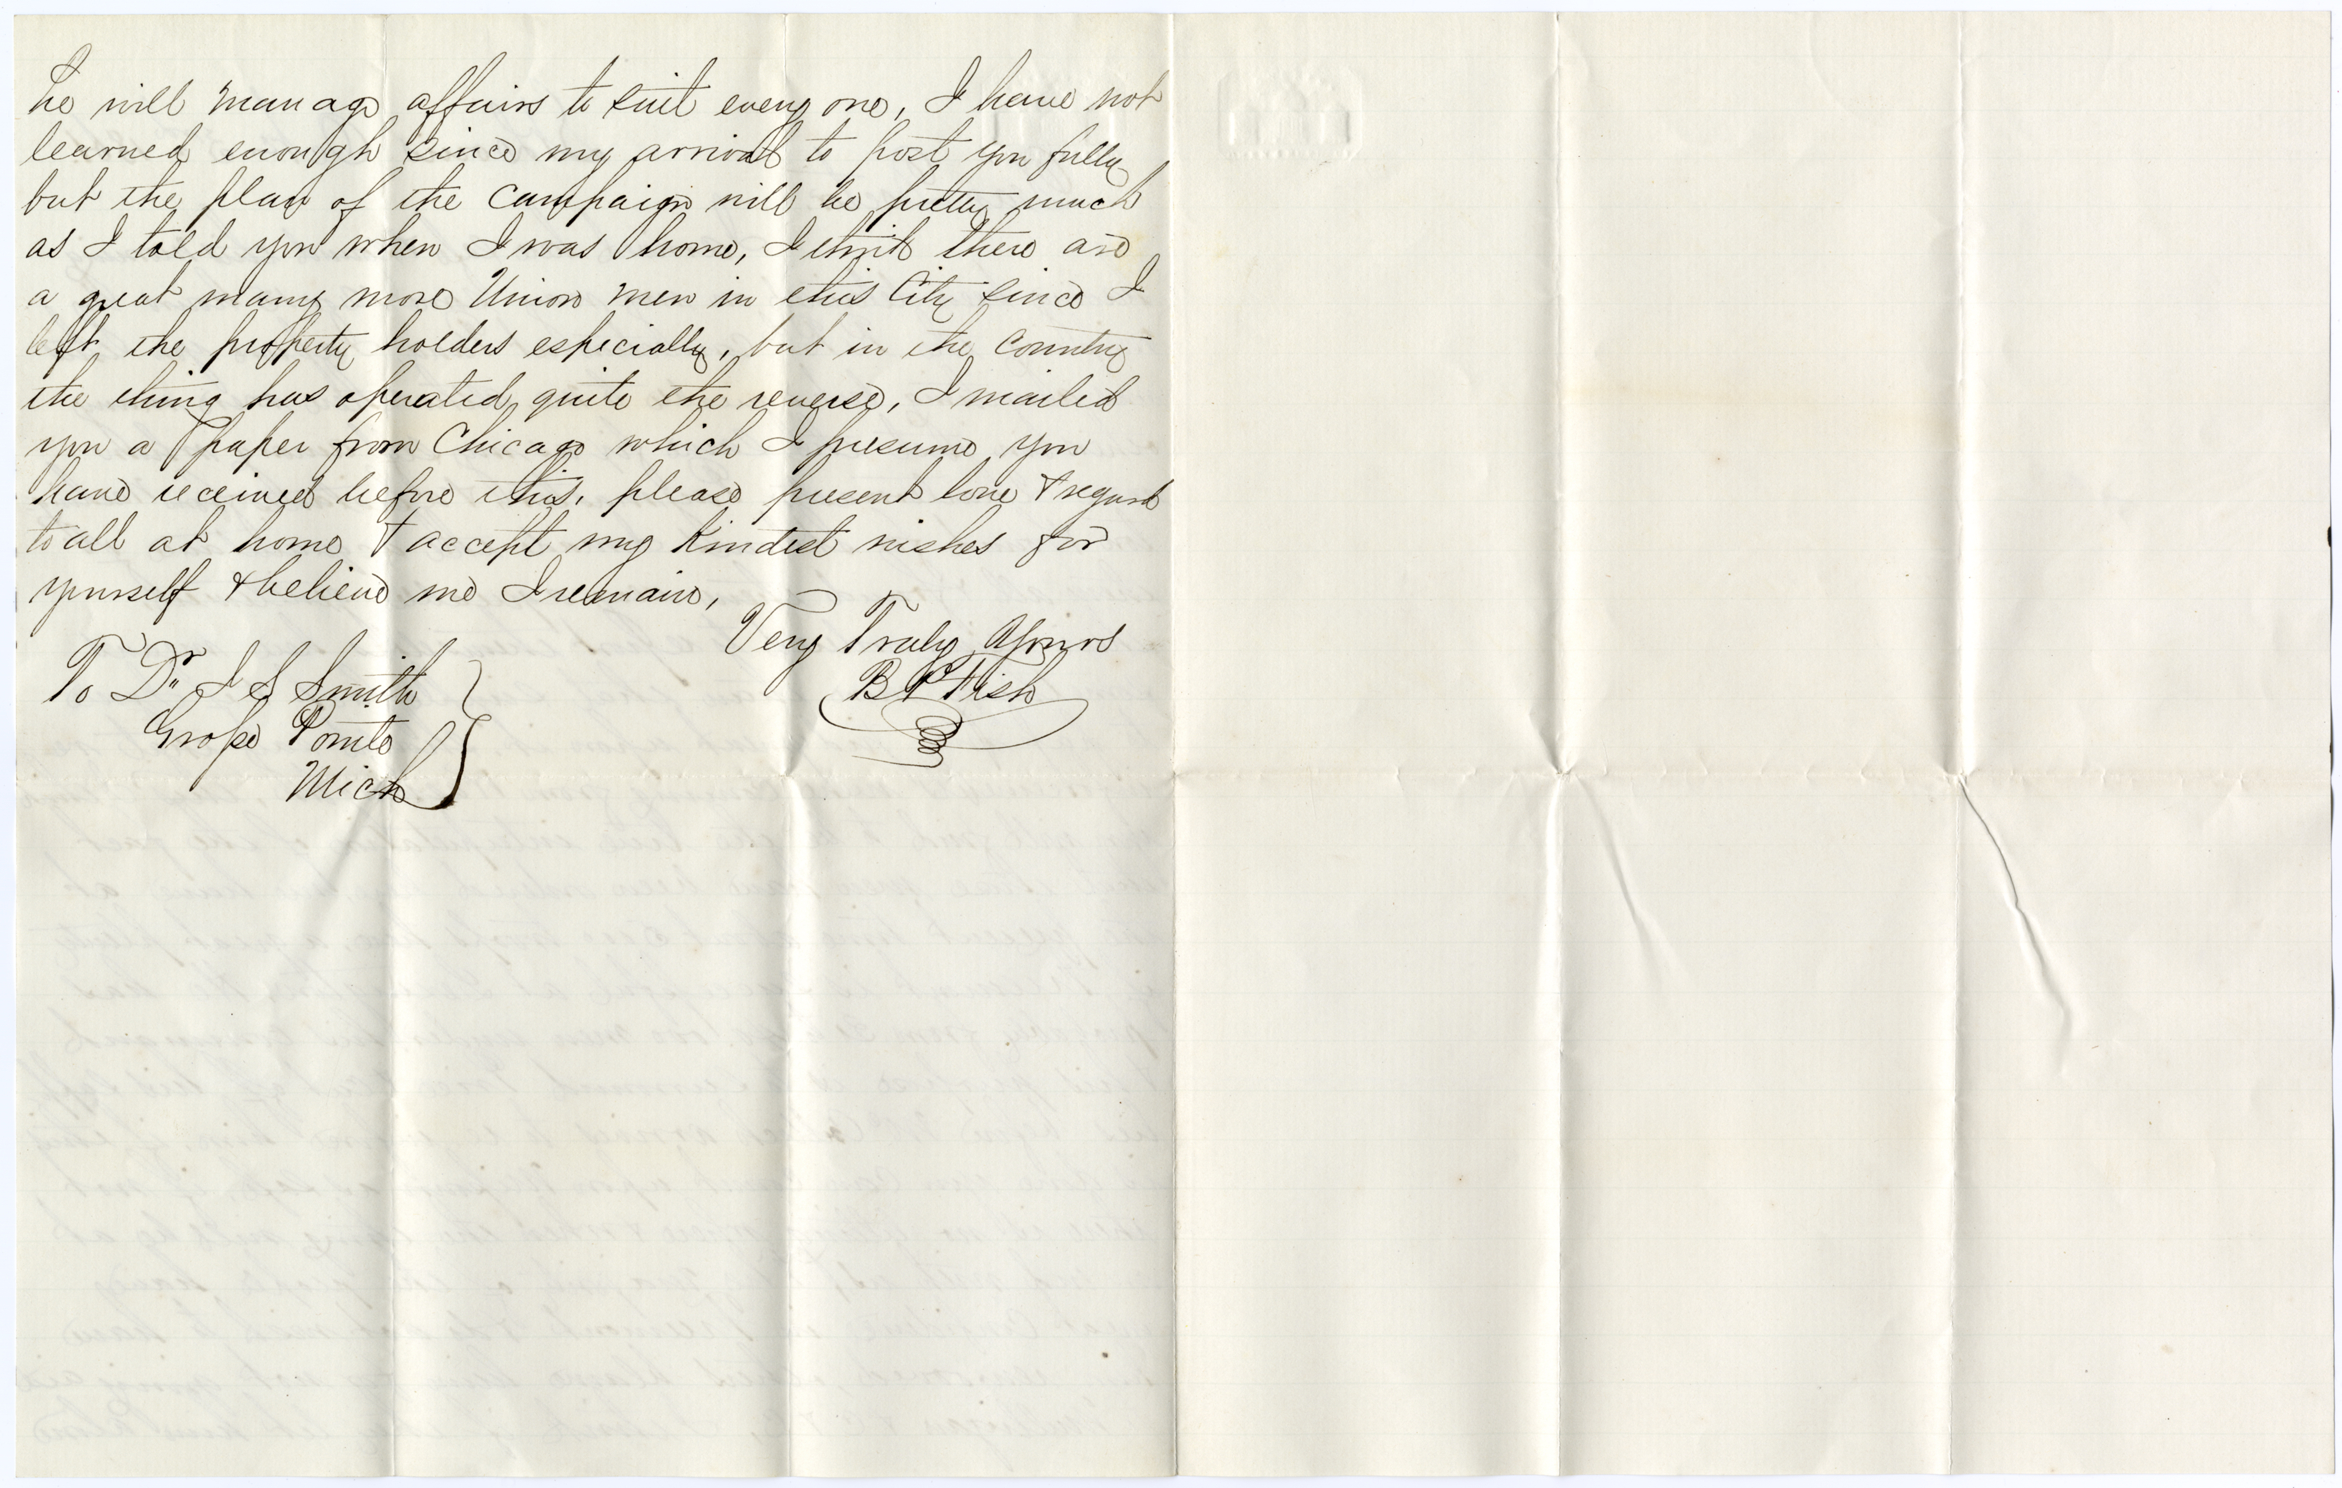 he will manage affairs to suit every one, I have not
learned enough since my arrival to post you fully
but the plan of the campaign will be pretty much
as I told you when I was home, I think there are
a great many more Union men in this City since I
left the property holders especially, but in the country
the thing has operated quite the reverse, I mailed
you a paper from Chicago which I presume you
have received before this, please present love & regard
to all at home & accept my kindest wishes for
yourself & believe me I remain,
Very Truly Yours
B P Fish
To Dr J S Smith
Grosse Pointe
Mich